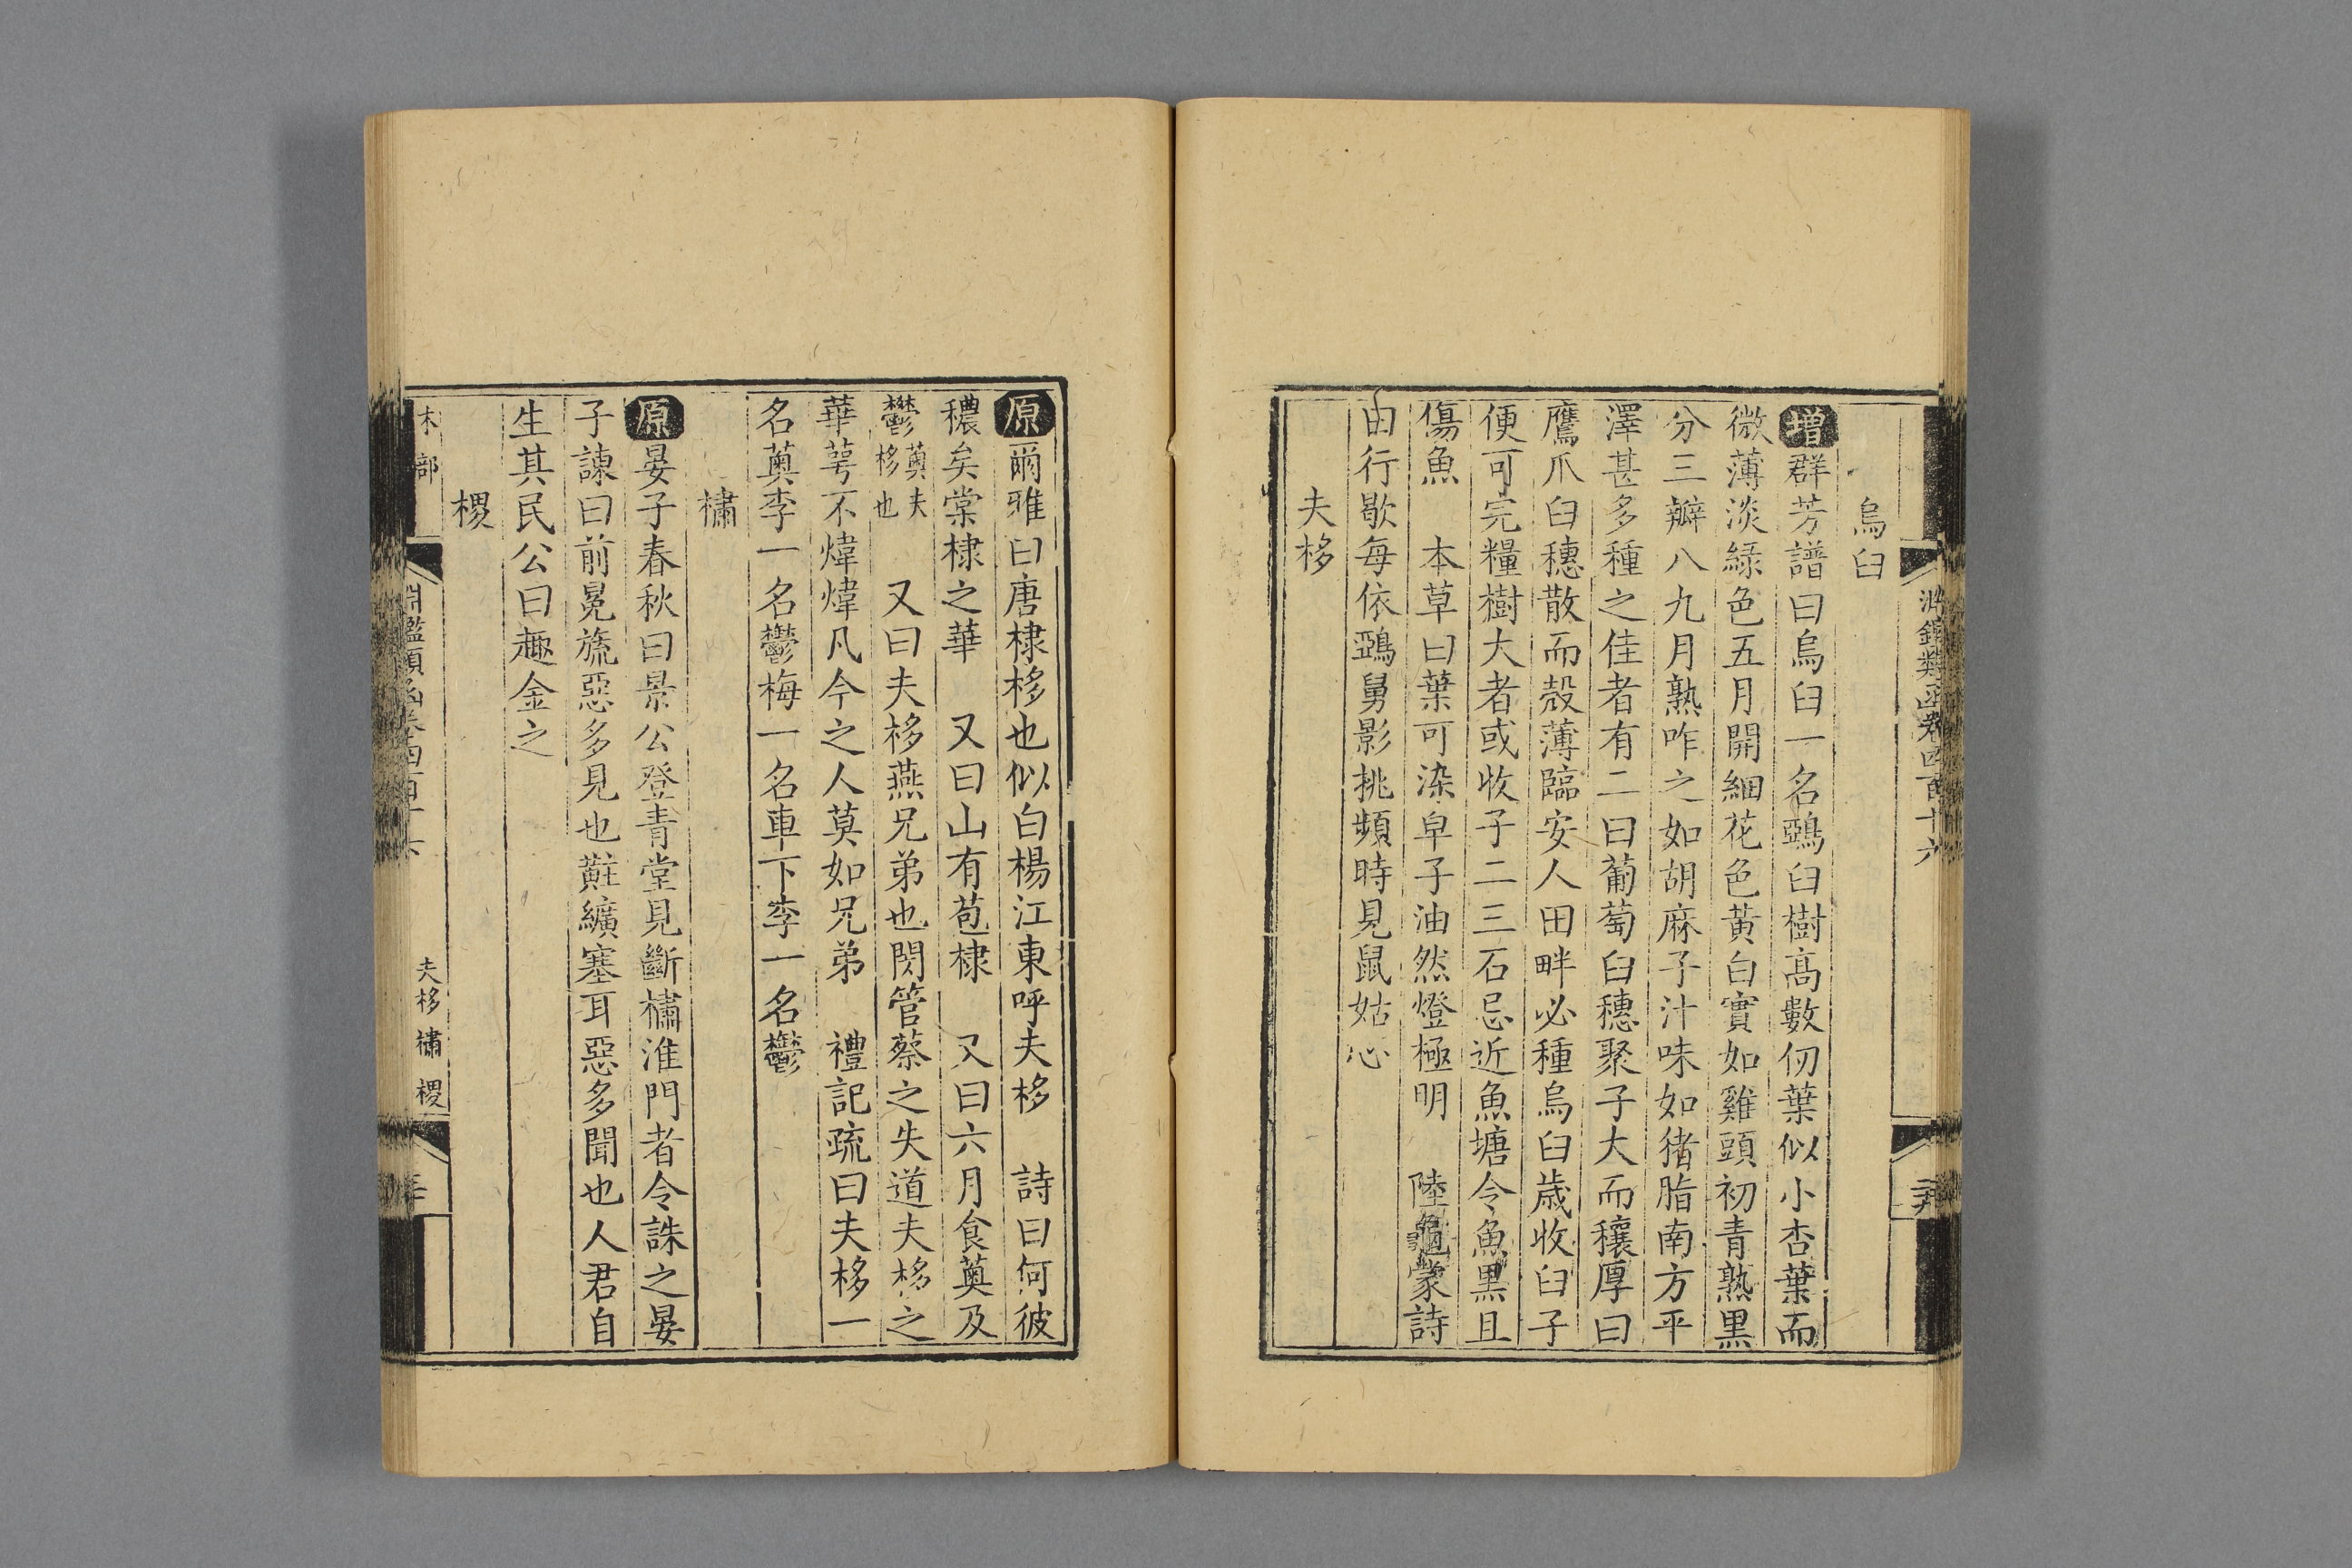 淵鑑類函卷四百十六
烏臼
增群芳譜曰烏臼一名鵶臼樹高數仞葉似小杏葉而
微薄淡緑色五月開細花色黃白實如雞頭初青熟黑
分三瓣八九月熟咋之如胡麻子汁味如猪脂南方平
澤甚多種之佳者有二曰葡萄臼穗聚子大而穰厚曰
鷹爪臼穗散而殼薄臨安人田畔必種烏臼歲收臼子
便可完糧樹大者或收子二三石忌近魚塘令魚黒且
傷魚　本草曰葉可染皁子油然燈極明　陸龜蒙詩
由行歇每依鵶舅影挑頻時見鼠姑心
夫栘
原爾雅曰唐棣栘也似白楊江東呼夫栘　詩曰何彼
穠矣棠棣之華　又曰山有苞棣　又曰六月食薁及
鬱薁夫栘也　又曰夫栘燕兄弟也閔管蔡之失道夫栘之
華萼不煒煒凡今之人莫如兄弟　禮記疏曰夫栘一
名薁李一名鬱梅一名車下李一名鬱
橚
原晏子春秋曰景公登青堂見斷橚淮門者令誅之晏
子諫曰前冕旒惡多見也黈纊塞耳惡多聞也人君自
生其民公曰趣金之
楥
木部　淵鑑類函卷四百十六　夫栘　橚　楥